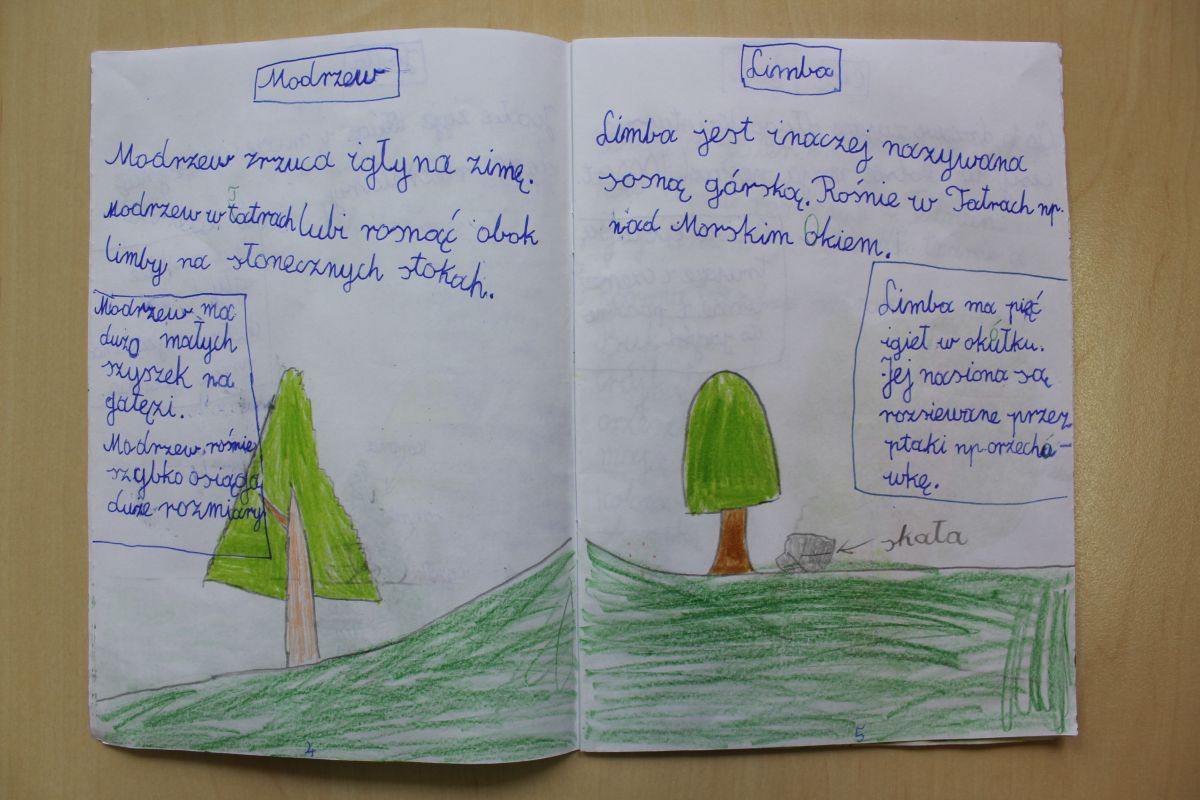 Modrzew
Modrzew zrzuca igły na zimę.
Modrzew w Tatrach lubi rosnąć obok
limby, na słonecznych stokach.
Modrzew ma
dużo małych
szyszek na
gałęzi.
Modrzew rośnie
szybko osiąga
duże rozmiary
4
Limba
Limba jest inaczej nazywana
sosną górską. Rośnie w Tatrach np.
nad Morskim Okiem.
Limba ma pięć
igieł w okółku.
Jej nasiona są
rozsiewane przez
ptaki np. orzechó-
wkę.
skała
5